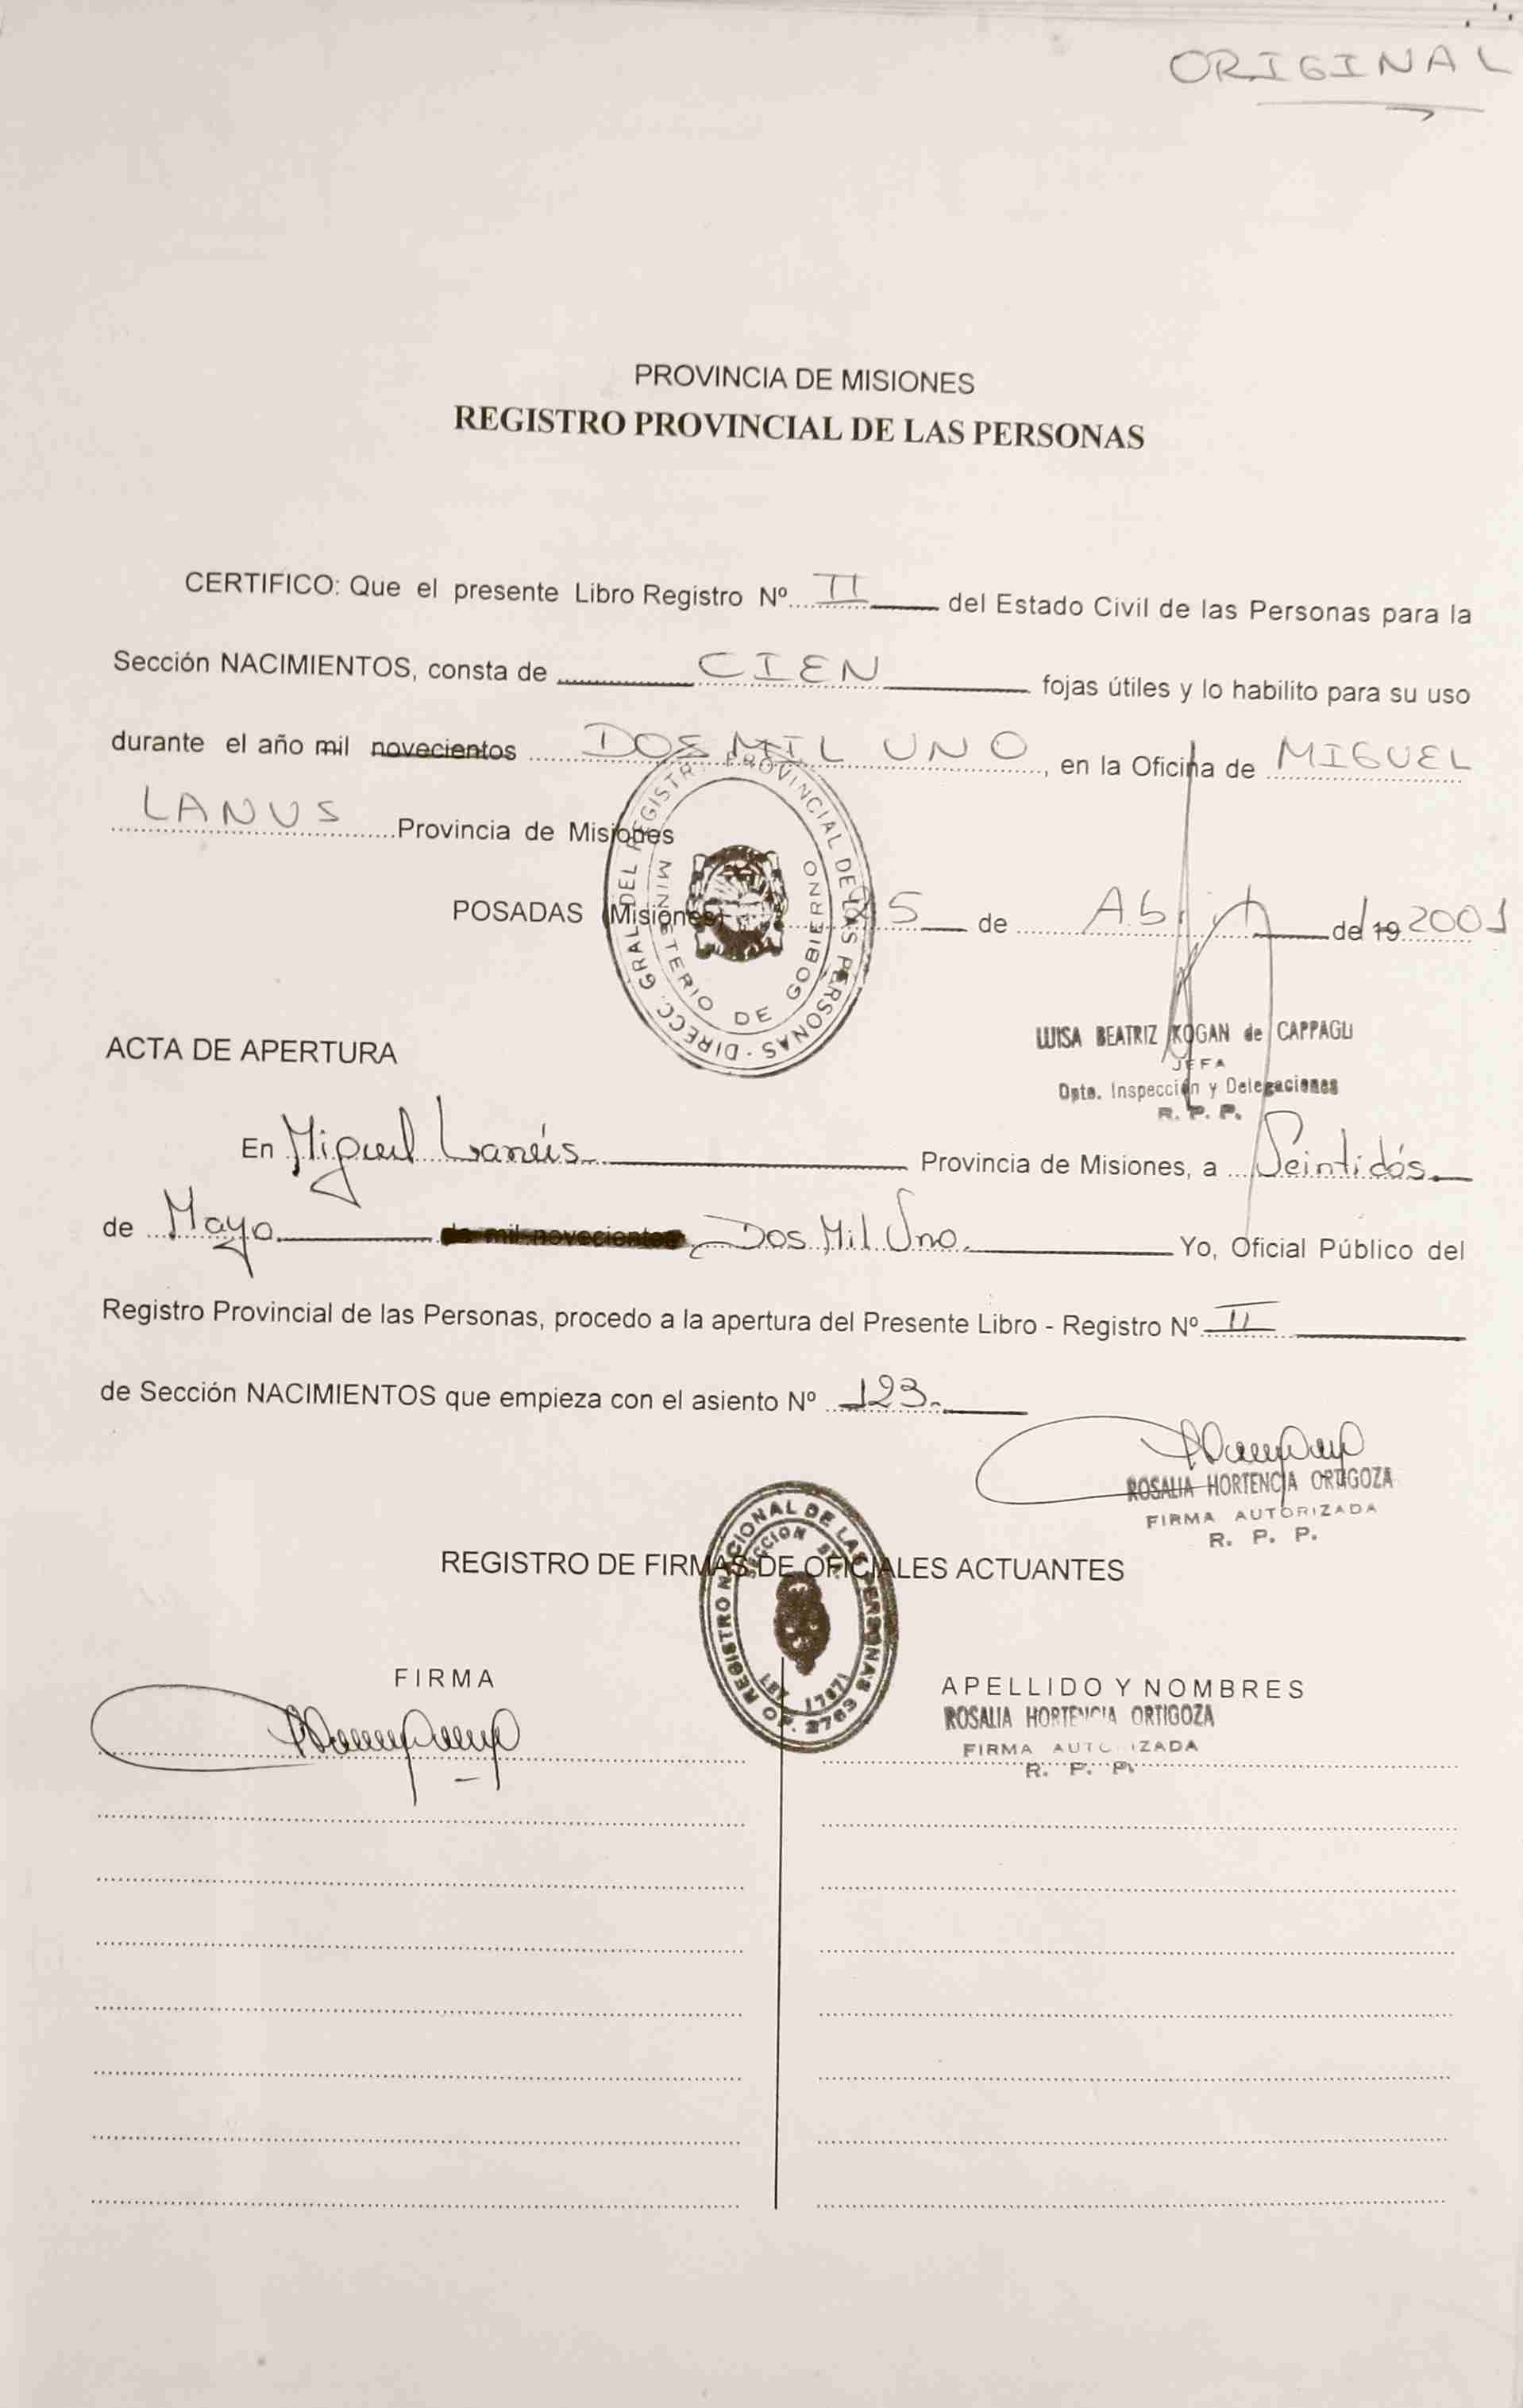 ORIGINAL
PROVINCIA DE MISIONES
REGISTRO PROVINCIAL DE LAS PERSONAS
CERTIFICO: Que el presente Libro Registro Nº II del Estado Civil de las Personas para la
Sección NACIMIENTOS, consta de CIEN fojas útiles y lo habilito para su uso
durante el año mil novecientos DOS MIL UNO, en la Oficina de MIGUEL
LANUS Provincia de Misiones
DIRECC. GRAL. DEL REGISTRO PROVINCIAL DE LAS PERSONAS
MINISTERIO DE GOBIERNO
POSADAS (Misiones) 25 de Abril de 19 2001
LUISA BEATRIZ KOGAN de CAPPAGLI
JEFA
Dpto. Inspección y Delegaciones
R. P. P.
ACTA DE APERTURA
En Miguel Lanús Provincia de Misiones, a Veintidós
de Mayo de mil novecientos Dos Mil Uno. Yo, Oficial Público del
Registro Provincial de las Personas, procedo a la apertura del Presente Libro - Registro Nº II
de Sección NACIMIENTOS que empieza con el asiento Nº 123.
ROSALIA HORTENCIA ORTIGOZA
FIRMA AUTORIZADA
R. P. P.
REGISTRO NACIONAL DE LAS PERSONAS
SECCION
LEY 17671
OF. 2763
REGISTRO DE FIRMAS DE OFICIALES ACTUANTES
FIRMA
APELLIDO Y NOMBRES
ROSALIA HORTENCIA ORTIGOZA
FIRMA AUTORIZADA
R. P. P.